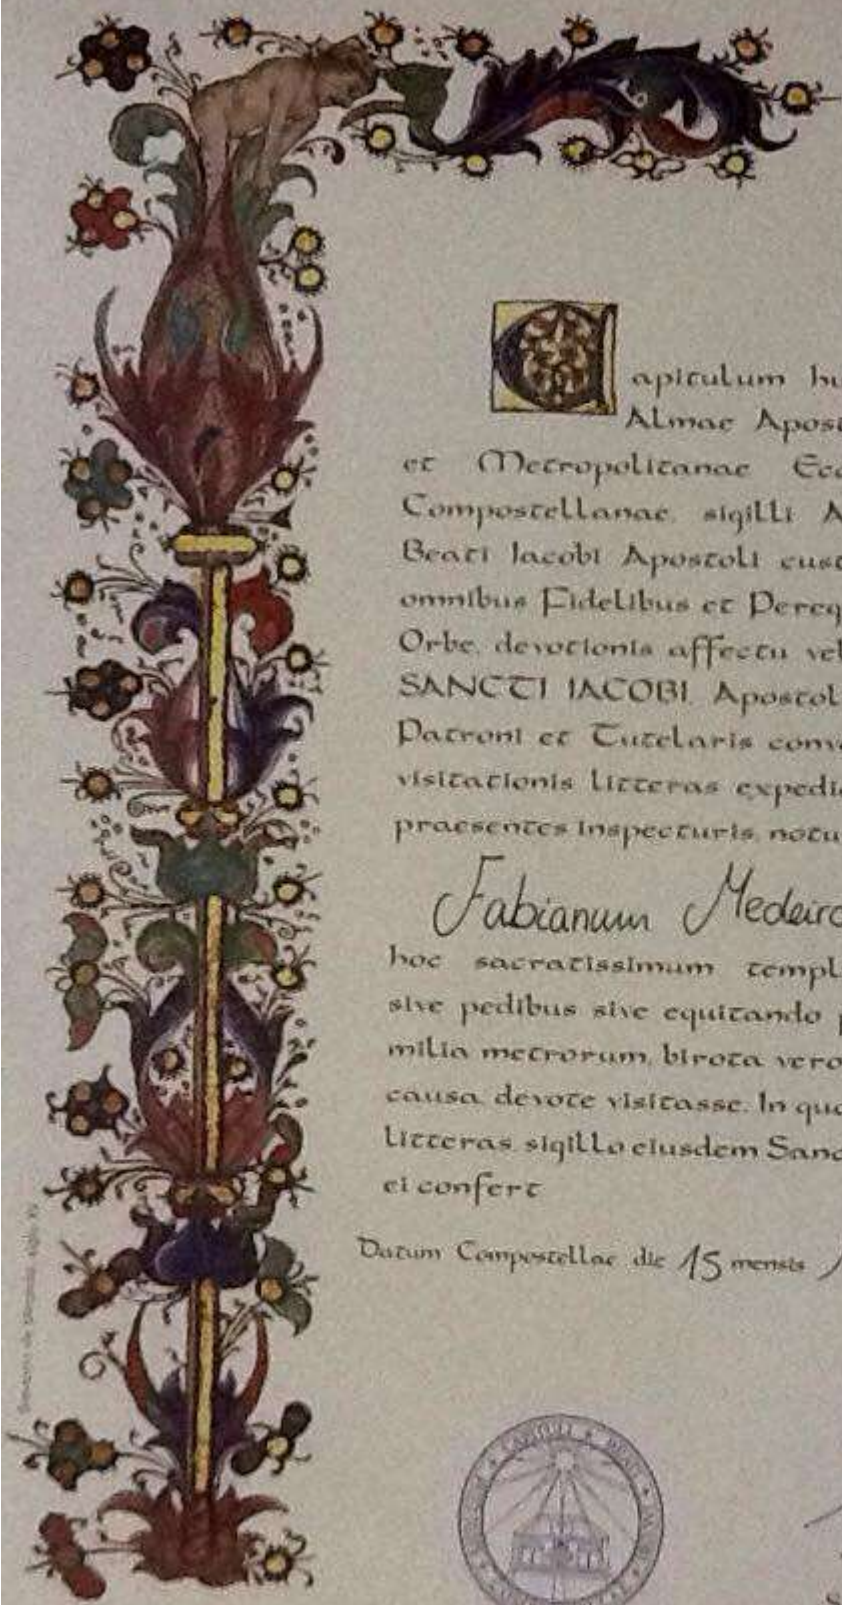 Capitulum hu
Almae Apost
et Metropolitanae Ecc
Compostellanae, sigilli A
Beati Iacobi Apostoli cust
omnibus Fidelibus et Pereg
Orbe, devotionis affectu vel
SANCTI IACOBI, Apostol
Patroni et Tutelaris conv
visitationis litteras expedi
praesentes inspecturis, notu
Fabianum Medeiro
hoc sacratissimum templ
sive pedibus sive equitando p
milia metrorum, birota vero
causa, devote visitasse. In quo
litteras sigillo eiusdem Sanc
ei confert
Datum Compostellae die 15 mensis